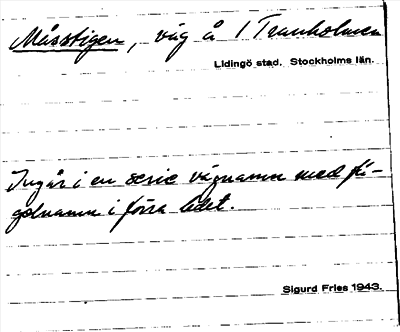 Måsstigen, väg å / Tranholmen
Lidingö stad. Stockholms län.
Ingår i en serie vägnamn med få-
gelnamn i förra ledet.
Sigurd Fries 1943.